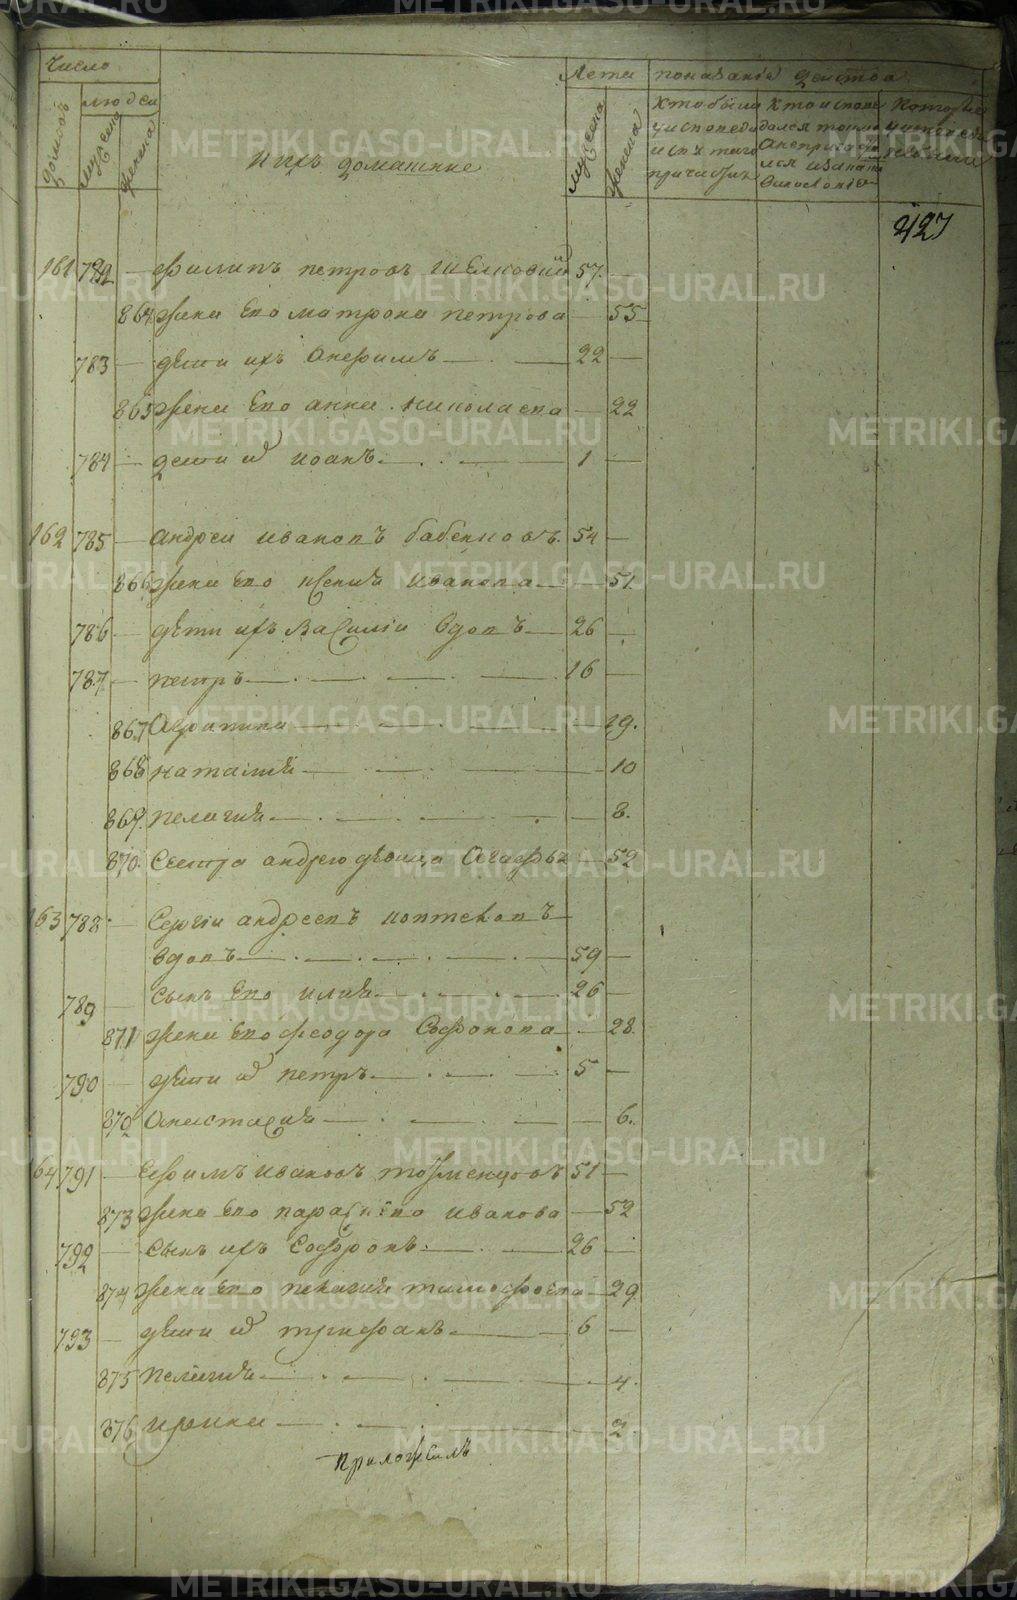 Число
Лета показанiе действа
домовъ
людеи
мужеска
женска
ихъ домашние
мужеска
женска
Кто были
у исповеди
и св: таго
причастiя
Кто испове
дался токмо
а не причасти
лся
427
161 782 — Филипъ петровъ Шелковый 57 —
864 жена Его матрона петрова — 55
783 — дети ихъ Анефимъ — 22 —
865 жена Его анна николаева — 22
784 — дети ихъ иоанъ — 1 —
162 785 — андреи ивановъ бабенновъ 54 —
866 жена Его ксения иванова — 51
786 — дети ихъ Василiи вдовъ — 26 —
787 — петръ — 16 —
867 — 19.
868 наталия — 10
869. пелагия — 8.
870. Сестра андрею девица Агафья — 52
163 788 — Сергiи андреевъ
вдовъ — 59 —
789 — сынъ Его илия — 26 —
871 жена Его феодора Софонова — 28
790 — дети ихъ петръ — 5 —
872 Анастасия — 6.
64 791 — Ефимъ ивановъ 51 —
873 жена Его параскева иванова — 52
792 — сынъ ихъ Софронъ — 26 —
874 жена Его пелагия тимофеева — 29
793 — дети ихъ трифанъ — 6 —
875 пелагия — 4.
876 ирина — 2
приложилъ
METRIKI.GASO-URAL.RU